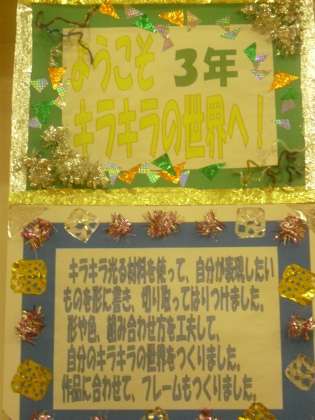 ようこそ 3年
キラキラの世界へ！
キラキラ光る材料を使って、自分が表現したい
ものを形に書き、切り取ってはりつけました。
形や色、組み合わせ方を工夫して、
自分のキラキラの世界をつくりました。
作品に合わせて、フレームもつくりました。